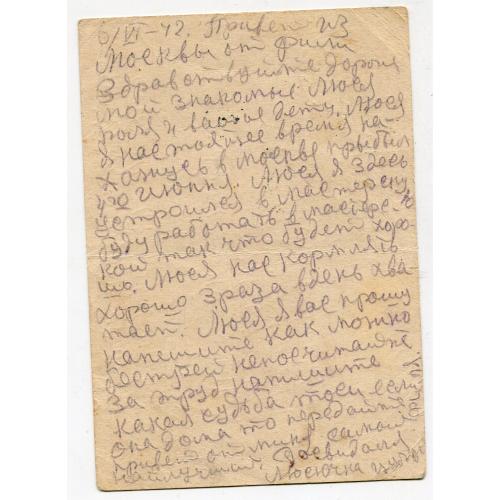 6/VI-42. Привет из
Москвы от Фили
Здравствуйте дорогие
мои знакомые Люся
и ваше дети, Люся
я настоящее время на-
хожусь в Москве прибыл
июня Люся я здесь
устроился в мастерскую
буду работать в мастерс-
кой так что будет хоро-
шо. Люся нас кормлять
хорошо 3 раза вдень хва
тает. Люся я вас прошу
напешите как можно
быстрей непосчитайте
за труд напишите
какая судьба Тоси если
она дома то передайте
привет от миня самой
наилучший. Досвидания
Люсючка